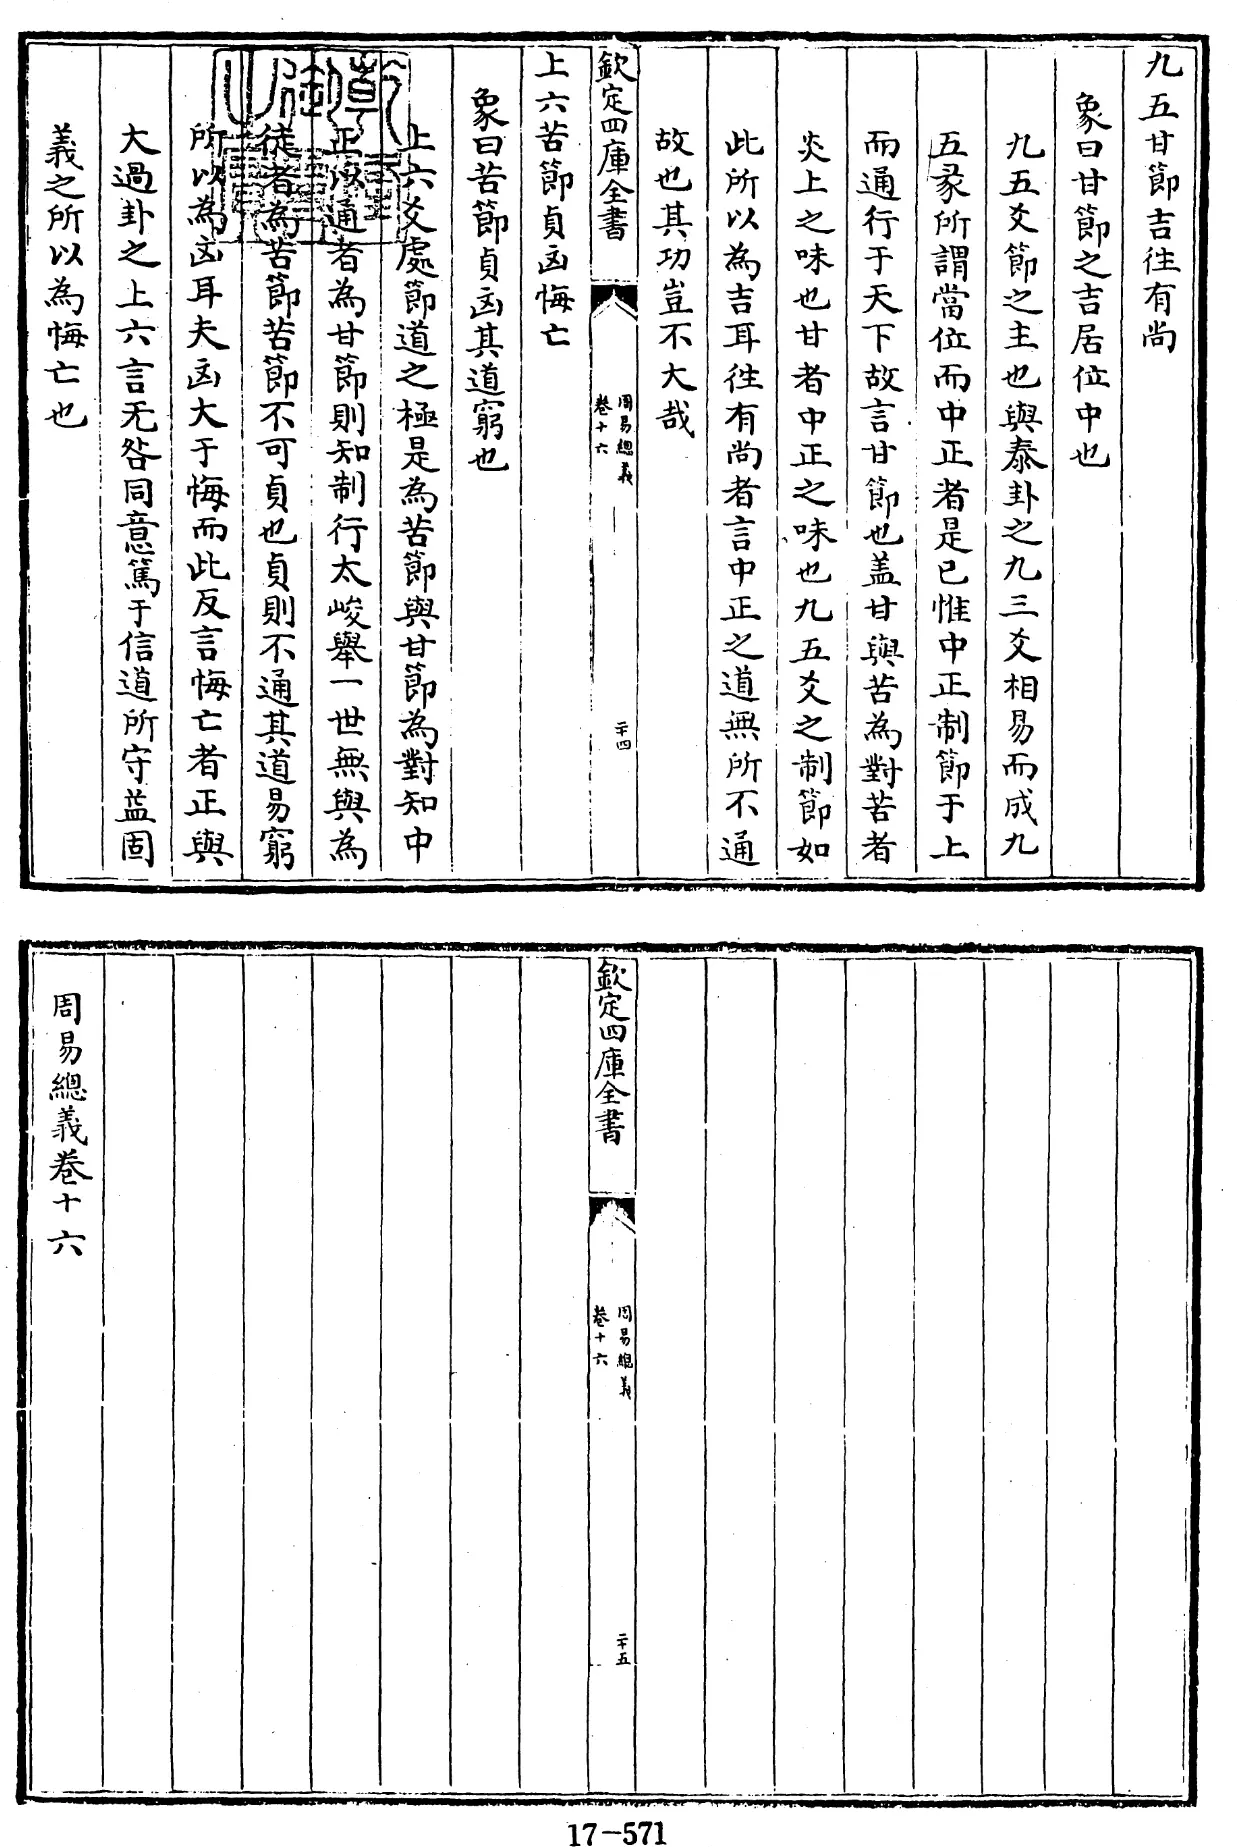 九五甘節吉往有尚
象曰甘節之吉居位中也
九五爻節之主也與泰卦之九三爻相易而成九
五彖所謂當位而中正者是已惟中正制節于上
而通行于天下故言甘節也盖甘與苦為對苦者
炎上之味也甘者中正之味也九五爻之制節如
此所以為吉耳往有尚者言中正之道無所不通
故也其功豈不大哉
欽定四庫全書
周易總義
卷十六
二十四
上六苦節貞凶悔亡
象曰苦節貞凶其道窮也
上六爻處節道之極是為苦節與甘節為對知中
正以通者為甘節則知制行太峻舉一世無與為
徒者為苦節苦節不可貞也貞則不通其道易窮
所以為凶耳夫凶大于悔而此反言悔亡者正與
大過卦之上六言无咎同意篤于信道所守益固
義之所以為悔亡也
欽定四庫全書
周易總義
卷十六
二十五
周易總義卷十六
17-571